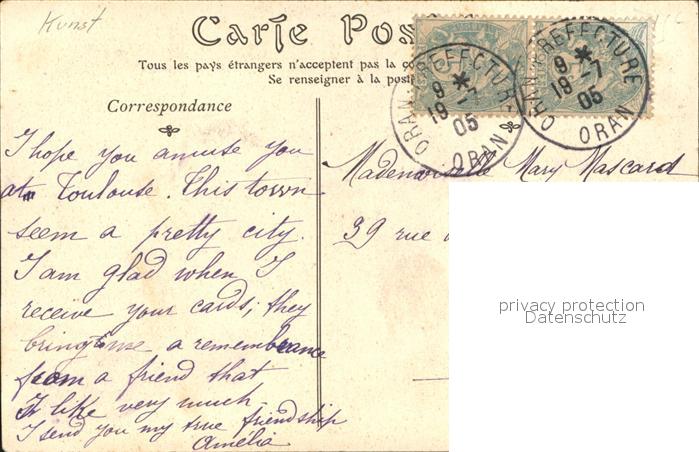 Kunst
Carte Pos
Tous les pays étrangers n'acceptent pas la co
Se renseigner à la poste
ORAN-PREFECTURE
9 *
19 -7
05
ORAN
ORAN-PREFECTURE
9 *
19 -7
05
ORAN
Correspondance
I hope you amuse you
at Toulouse. This town
seem a pretty city.
I am glad when I
receive your cards; they
bring me a remembrance
from a friend that
I like very much
I send you my true friendship
Amélia
Mademoiselle Mary Mascard
39 rue
privacy protection
Datenschutz